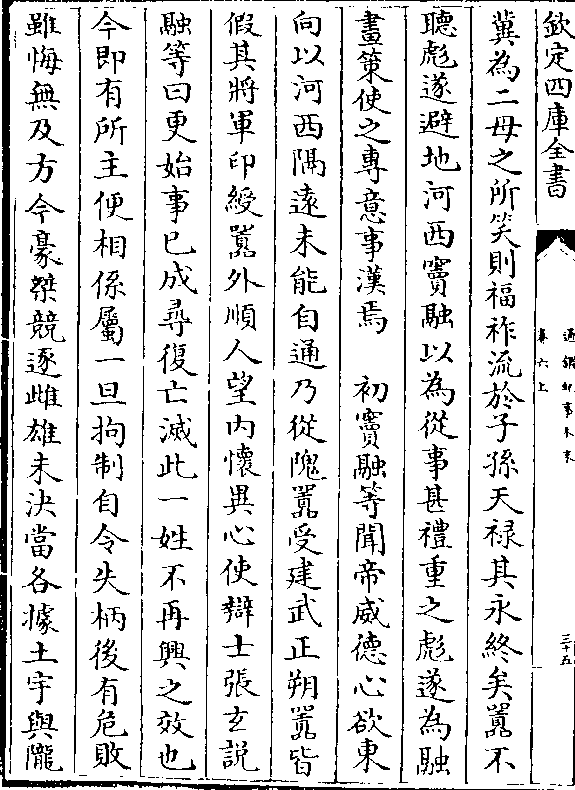 欽定四庫全書
通鑑紀事本末
卷六上
三十五
冀為二母之所笑則福祚流於子孫天禄其永終矣囂不
聽彪遂避地河西竇融以為從事甚禮重之彪遂為融
畫策使之專意事漢焉　初竇融等聞帝威德心欲東
向以河西隔遠未能自通乃從隗囂受建武正朔囂皆
假其將軍印綬囂外順人望内懐異心使辯士張玄説
融等曰更始事已成尋復亡滅此一姓不再興之效也
今即有所主便相係屬一旦拘制自令失柄後有危敗
雖悔無及方今豪桀競逐雌雄未決當各據土宇與隴